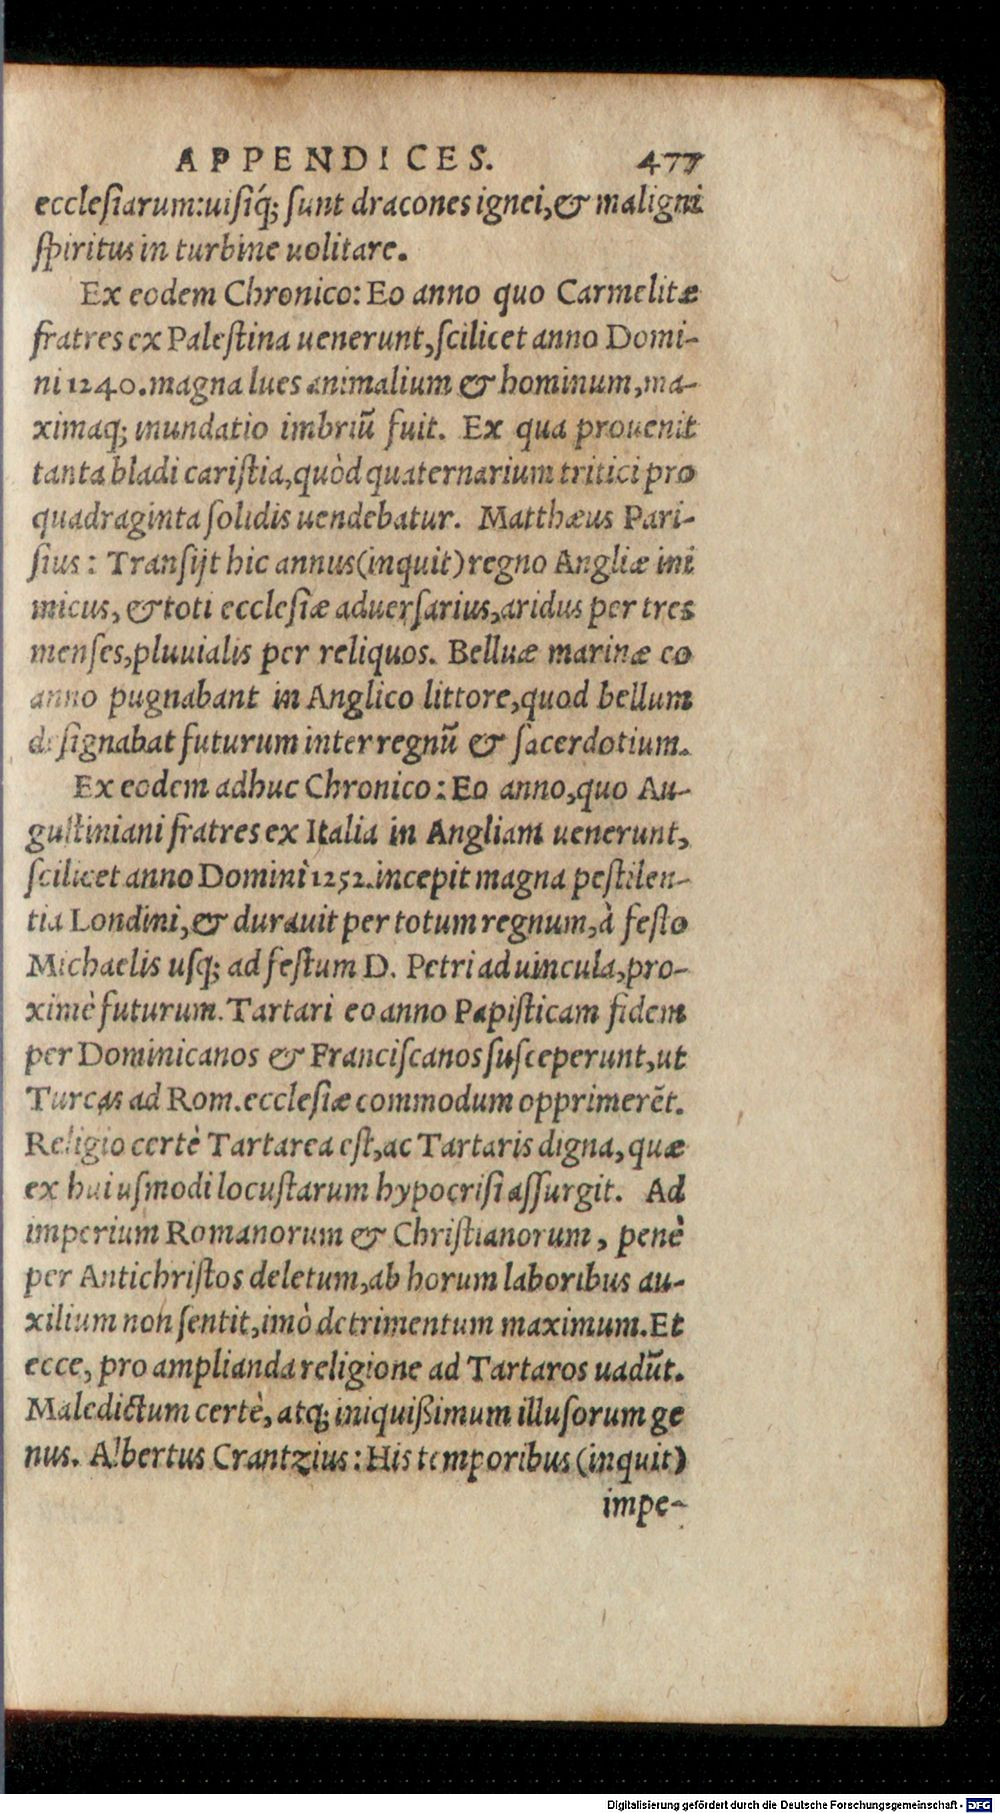 APPENDICES. 477
ecclesiarum:uisiq́; sunt dracones ignei,& maligni
spiritus in turbine uolitare.
Ex eodem Chronico: Eo anno quo Carmelitæ
fratres ex Palestina uenerunt, scilicet anno Domi-
ni 1240. magna lues animalium & hominum, ma-
ximaq; inundatio imbriũ fuit. Ex qua prouenit
tanta bladi caristia, quòd quaternarium tritici pro
quadraginta solidis uendebatur. Matthæus Pari-
sius: Transijt hic annus (inquit) regno Angliæ ini
micus, & toti ecclesiæ aduersarius, aridus per tres
menses, pluuialis per reliquos. Belluæ marinæ eo
anno pugnabant in Anglico littore, quod bellum
designabat futurum inter regnũ & sacerdotium.
Ex eodem adhuc Chronico: Eo anno, quo Au-
gustiniani fratres ex Italia in Angliam uenerunt,
scilicet anno Dominì 1252. incepit magna pestilen-
tia Londini, & durauit per totum regnum, à festo
Michaelis usq; ad festum D. Petri ad uincula, pro-
ximè futurum. Tartari eo anno Papisticam fidem
per Dominicanos & Franciscanos susceperunt, ut
Turcas ad Rom. ecclesiæ commodum opprimerẽt.
Religio certè Tartarea est, ac Tartaris digna, quæ
ex huiusmodi locustarum hypocrisi assurgit. Ad
imperium Romanorum & Christianorum, penè
per Antichristos deletum, ab horum laboribus au-
xilium non sentit, imò detrimentum maximum. Et
ecce, pro amplianda religione ad Tartaros uadũt.
Maledictum certè, atq; iniquißimum illusorum ge
nus. Albertus Crantzius: His temporibus (inquit)
impe-
Digitalisierung gefördert durch die Deutsche Forschungsgemeinschaft - DFG